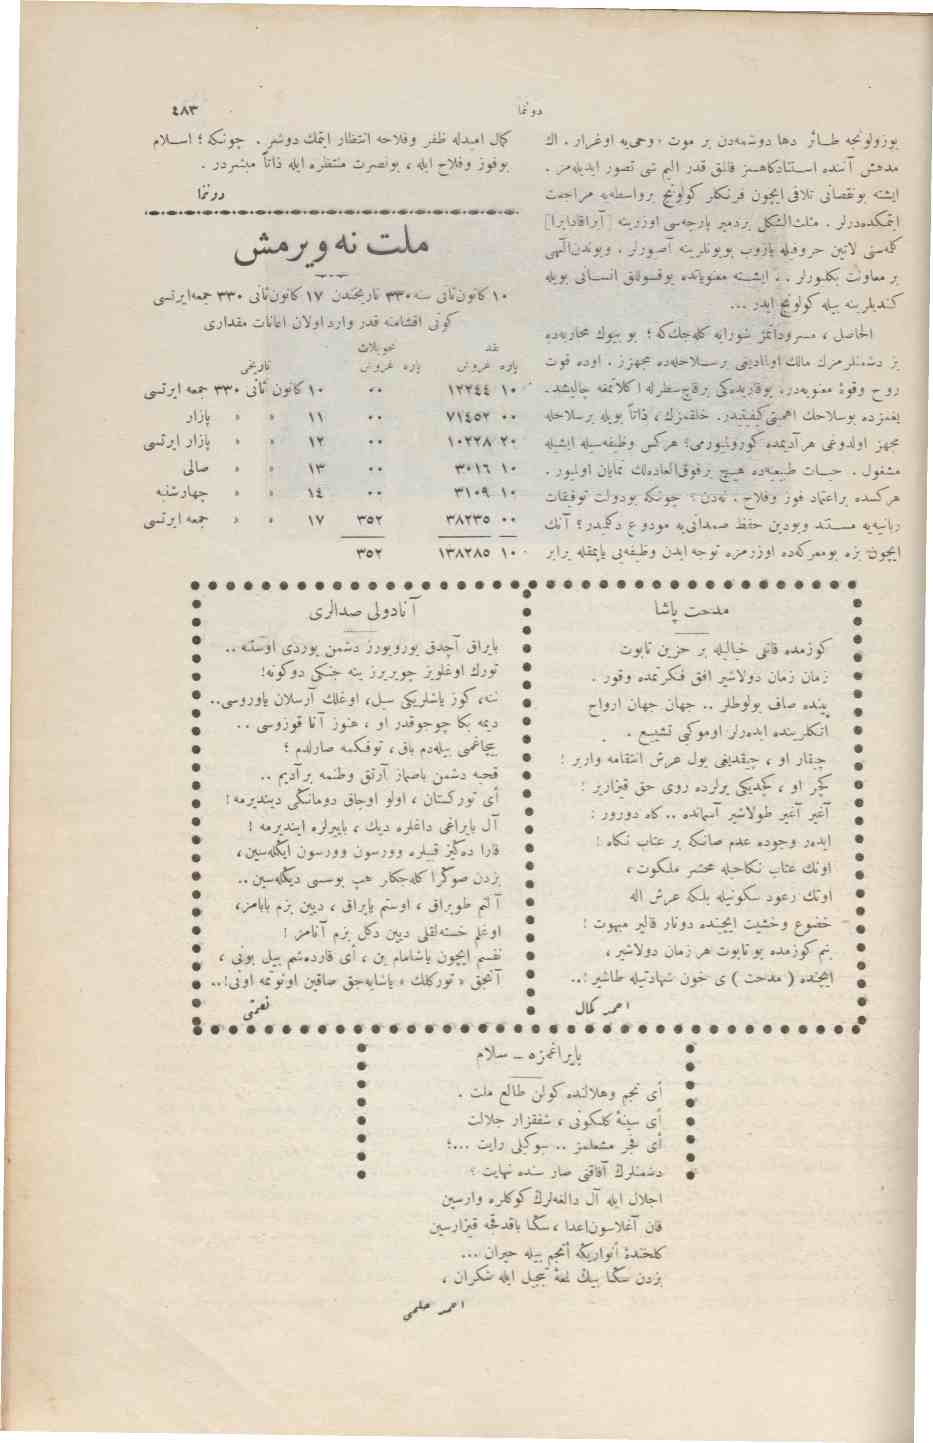 دوننما
٤٨٣
بوزولونجه طـائر دها دوشمه‌دن بر موت ، وحمی‌یه اوغرار . اك
مدهش آننده اسـتنادكاهسز قالمق قدر الیم شی تصور ایدیله‌مز .
ایشته بونقصانی تلافی ایچون فرنكلر كولونج برواسطه‌یه مراجعت
ایتمكده‌درلر . مثلث‌الشكل بردمیر پارچه‌سی اوزرینه [آبراقادابرا]
كله‌سنی لاتین حروفیله یازوب بویونلرینه آصورلر . وبوندن‌الٓهی
بر معاونت بكلـورلر . . ایشـته معنویاتده یوقسوللق انسـانی بویله
كندیلرینه بیله كولونج ایدر ...
الحاصل ، مسروداتمز شورایه كله‌جك‌كه ؛ بو بیوك محاربه‌ده
بز دشمنلرمزك مالك اولمادیغی برسـلاحله‌ده مجهزز . اوده قوت
روح وقوهٔ معنویه‌در. یوقاریده‌كی برقاچ‌سطرله اكلاتمغه چالیشد.
یغمزده بوسلاحك اهمیتی‌كیفیتیدر. خلقمزك ، ذاتاً بویله برسلاحله
مجهز اولدوغی هر آدیمده كورولمیورمی؟ هركس وظیفه‌سیله ایشیله
مشغول . حسیات طبیعیه‌ده هیـچ برفوق‌العاده‌لك نمایان اولمیور .
هركسده براعتماد فوز وفلاح . نه‌دن ؟ چونكه بودولت توفیقات
ربانیه‌یه مسـتند وبودین حفظ صمدانی‌یه مودوع دكلمیدر ؟ آنك
ایچون بزه بومعركه‌ده اوزرمزه توجه ایدن وظیفه‌یی یاپمقله برابر
كمال امیدله ظفر وفلاحه انتظار ایتمك دوشر . چونكه ؛ اسـلام
بوفوز وفلاح ایله ، بونصرت منتظره ایله ذاتاً مبشردر .
دوننما
ملت نه‌ویرمش
١٠ كانون‌ثانی سنه ٣٣٠ تاریخندن ١٧ كانون‌ثانی ٣٣٠ جمعه‌ایرتسی
كونی اقشامنه قدر وارد اولان اعانات مقداری
نقد تحویلات
پاره غروش پاره غروش تاریخی
١٠ ١٢٢٤٤ ٠٠ ١٠ كانون ثانی ٣٣٠ جمعه ایرتسی
٠٠ ٧١٤٥٢ ٠٠ ١١ » » پازار
٢٠ ١٠٢٢٨ ٠٠ ١٢ » » پازار ایرتسی
١٠ ٣٠١٦ ٠٠ ١٣ » » صالی
١٠ ٣١٠٩ ٠٠ ١٤ » » چهارشنبه
٠٠ ٣٨٢٣٥ ٣٥٢ ١٧ » » جمعه ایرتسی
١٠ ١٣٨٢٨٥ ٣٥٢
مدحت پاشا
كوزمده قانلی خیالیله بر حزین تابوت
زمان زمان دولاشیر افق فكرتمده وقور .
پینده صاف بولوطلر .. جهان جهان ارواح
اتكلرینده ایدرلر اوموكبی تشییع .
چیقار او ، چیقدیغی یول عرش انتقامه واریر !
كچر او ، كچدیكی یرلرده روی حق قیزاریر :
آغیر آغیر طولاشیر آسمانده .. كاه دورور :
ایدر وجوده عدم صانكه بر عتاب نكاه !
اونك عتاب نكاحیله محشر ملكوت ،
اونك رعود سكونیله بلكه عرش اله
خضوع وخشیت ایچنده دونار قالیر مبهوت !
بنم كوزمده بوتابوت هر زمان دولاشیر ،
ایچنده ( مدحت ) ی خون شهادتیله طاشیر !..
احمد كمال
آنادولی صدالری
بایراق آچدق یورویورز دشمن یوردی اوستنه ..
تورك اوغلویز چویریرز ینه جنكی دوكونه!
ننه، كوز یاشلریكی سیل، اوغلك آرسلان یاوروسی..
دیمه بكا چوجوقدر او ، هنوز آنا قوزوسی . .
بیچاغمی بیله‌دم باق ، توفنكمه صارلدم ؛
قحبه دشمن باصماز آرتق وطنمه بر آدیم ..
أی توركستان ، اولو اوجاق دومانكی دیندیرمه !
آل بایراغی داغلره دیك ، بایرلره ایندیرمه !
قارا ده‌كیز قییلره وورسون وورسون ایكله‌سین ،
بزدن صوكرا كله‌جكلر هپ بوسسی دیكله‌سین ..
آلتم طوپراق ، اوستم بایراق ، دیین بزم بابامز،
اوغلم خسته‌لقلی دیین دكل بزم آنامز !
نفسم ایچون یاشامام بن ، أی قارده‌شم بیل بونی ،
آنجق « توركلك » یاشایه‌جق صاقین اونوتمه اونی!..
نعمتی
بایراغمزه ــ سلام
أی نجم وهلالنده كولن طالع ملت .
أی سینهٔ كلكونی ، شفقزار جلالت
أی فجر مشعلمز .. سوكیلی رایت ...؛
دشمنلرك آفاقنی صار سنده نهایت ؟
اجلال ایله آل دالغه‌لرك كوكلره وارسین
قان آغلاسون‌اعدا ، سكا باقدقچه قیزارسین
كلخندهٔ انواریكه أنجم بیله حیران ...
بزدن سكا بیك نغمهٔ تبجیل ایله شكران ،
احمد حلمی